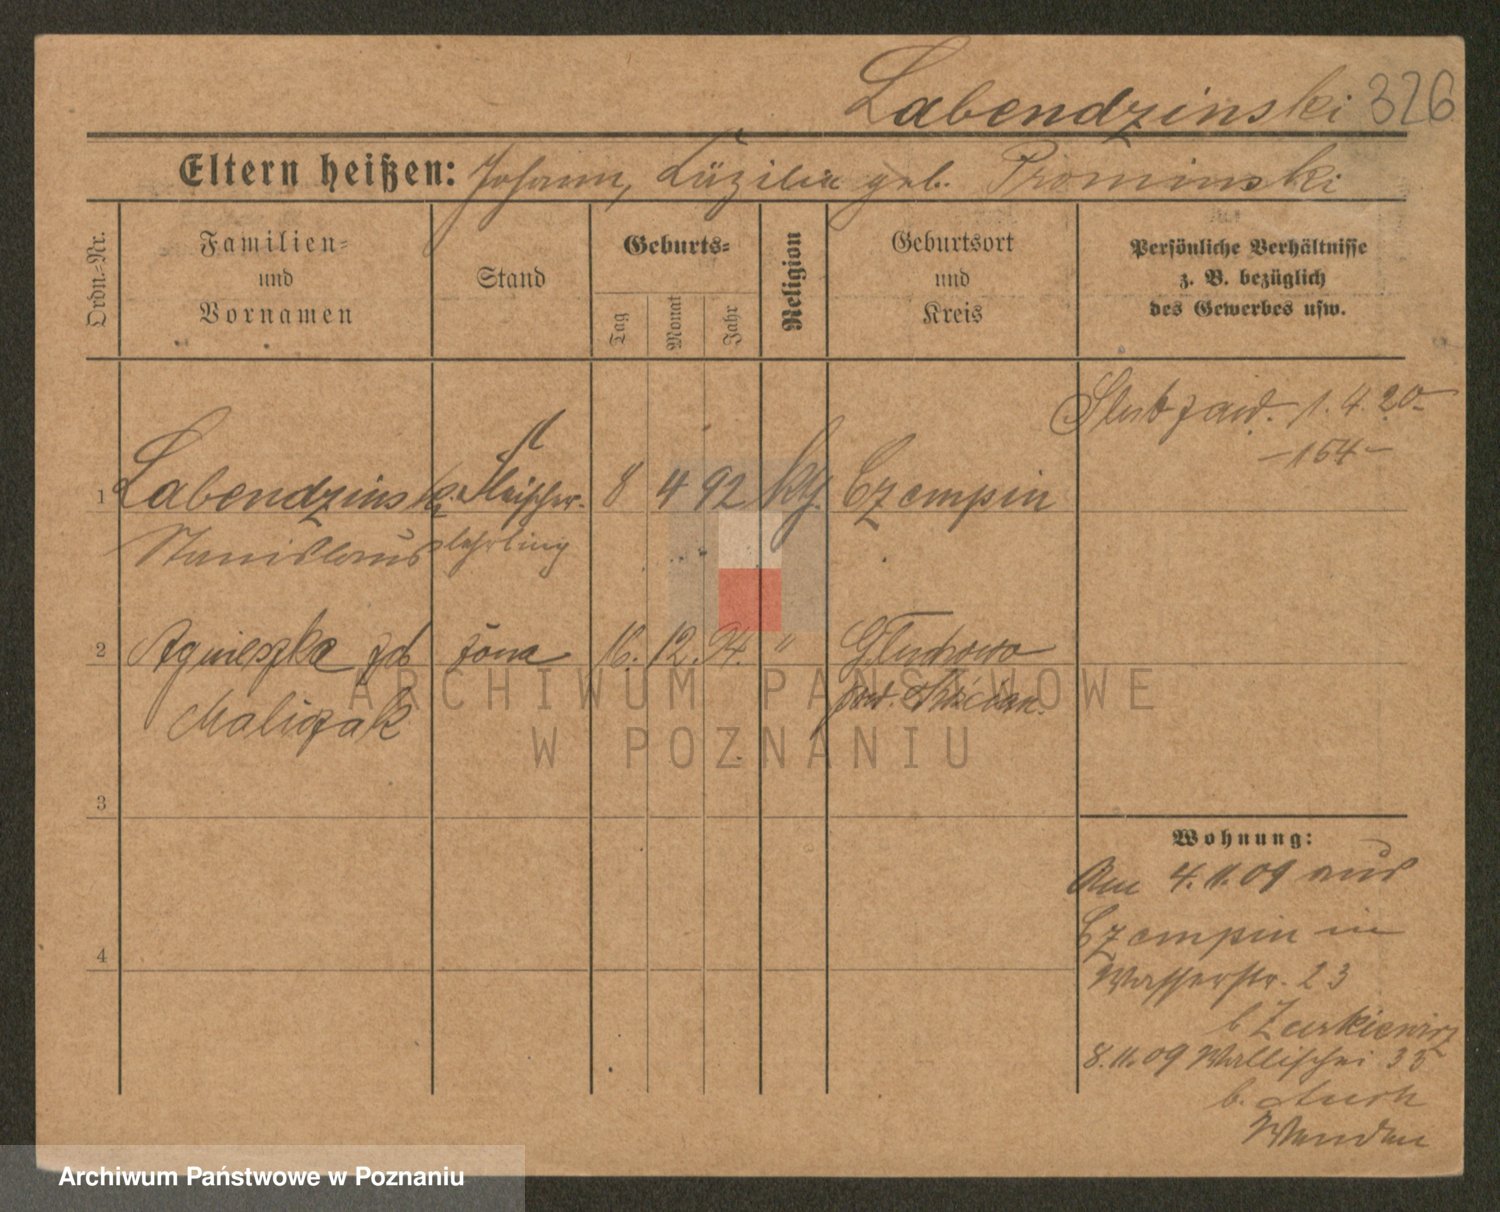 Labendzinski 326
Eltern heißen: Johann, Cäzilia geb. Prominski
Ordn.-Nr.
Familien-
und
Vornamen
Stand
Geburts-
Tag
Monat
Jahr
Religion
Geburtsort
und
Kreis
Persönliche Verhältnisse
z. B. bezüglich
des Gewerbes usw.
Slub zaw. 1. 4. 20
-154-
1 Labendzinski Fleischer- 8 4 92 Czempin
Stanislaus lehrling
2 Agnieszka zd żona 16. 12. 94. " Głuchowo
Maliczak pow.
3
4
Wohnung:
Am 4. 11. 09 aus
Czempin in
Wasserstr. 23
b Zurkiewicz
8. 11. 09 Wallischei 33
b.
ARCHIWUM PAŃSTWOWE
W POZNANIU
Archiwum Państwowe w Poznaniu